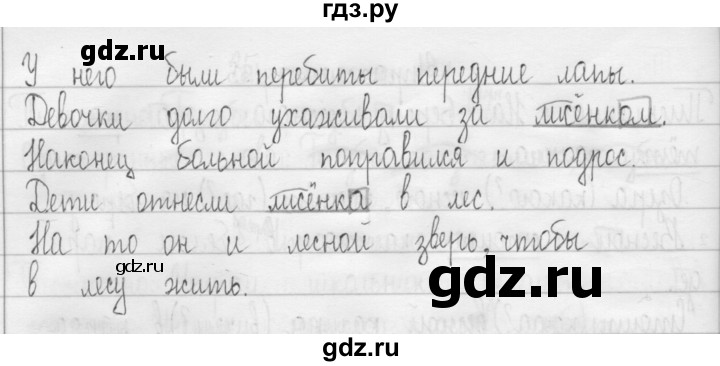 гдз.ру
gdz.ru
gdz.ru
У него были перебиты передние лапы.
Девочки долго ухаживали за лисёнком.
Наконец больной поправился и подрос.
Дети отнесли лисёнка в лес.
На то он и лесной зверь, чтобы
gdz.ru
gdz.ru
в лесу жить.
gdz.ru